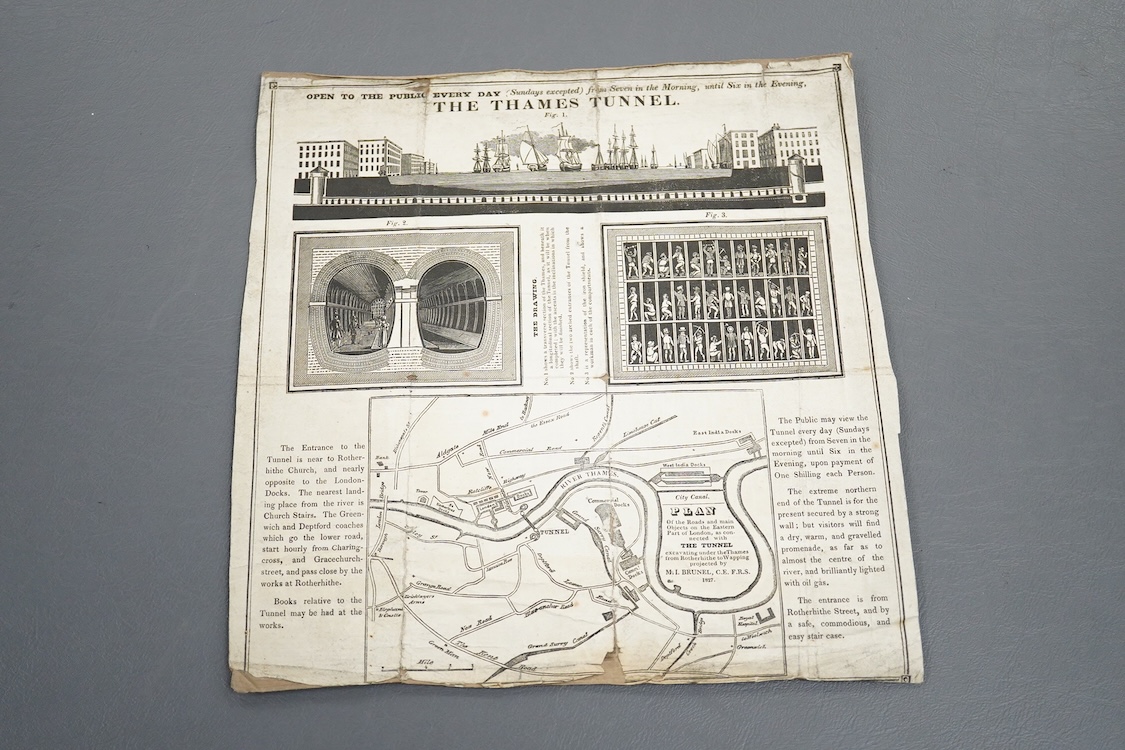 OPEN TO THE PUBLIC EVERY DAY (Sundays excepted) from Seven in the Morning, until Six in the Evening,
THE THAMES TUNNEL.
Fig. 1.
Fig. 2.
Fig. 3.
THE DRAWING
No. 1 shows a transverse section of the Thames, and beneath it
a longitudinal section of the Tunnel, as it will be when
completed; with the ascents in the inclinations in which
they will be finished.
No 2 shows the two arched entrances of the Tunnel from the
shaft.
No 3 is a representation of the iron shield, and shows a
workman in each of the compartments.
The Entrance to the
Tunnel is near to Rother-
hithe Church, and nearly
opposite to the London-
Docks. The nearest land-
ing place from the river is
Church Stairs. The Green-
wich and Deptford coaches
which go the lower road,
start hourly from Charing-
cross, and Gracechurch-
street, and pass close by the
works at Rotherhithe.
Books relative to the
Tunnel may be had at the
works.
Mile End
the Essex Road
Regents Canal
Limehouse Cut
Aldgate
Commercial Road
East India Docks
Bank
Highway
Ratcliffe
West India Docks
RIVER THAMES
City Canal.
Tower
London
Docks
Commercial
Docks
TUNNEL
London Bridge
PLAN
Of the Roads and main
Objects on the Eastern
Part of London, as con-
nected with
THE TUNNEL
excavating under the Thames
from Rotherhithe to Wapping
projected by
M. I. BRUNEL, C.E. F.R.S.
1827.
Grange Road
Bricklayers
Arms
Elephant
& Castle
New Road
Green Man
The Kent
Road
Grand Surry Canal
Deptford
Royal
Hospital
to Woolwich
Greenwich
Mile
The Public may view the
Tunnel every day (Sundays
excepted) from Seven in the
morning until Six in the
Evening, upon payment of
One Shilling each Person.
The extreme northern
end of the Tunnel is for the
present secured by a strong
wall; but visitors will find
a dry, warm, and gravelled
promenade, as far as to
almost the centre of the
river, and brilliantly lighted
with oil gas.
The entrance is from
Rotherhithe Street, and by
a safe, commodious, and
easy stair case.